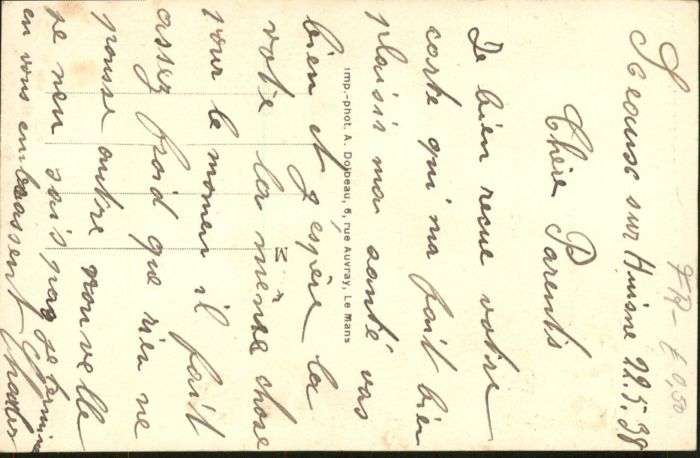 Sceaux sur Huisne 22.5.38
FR - € 0,50
Chère Parents
Je bien recue votre
carte qui ma fait bien
plaisir ma santé vas
bien et j'espère la
votre la même chose
pour le momen il fait
assez froid que rien ne
pousse autre nouvelle
je nen sais pas je termine
en vous embrassent
Imp.-phot. A. Dolbeau, 6, rue Auvray, Le Mans
M